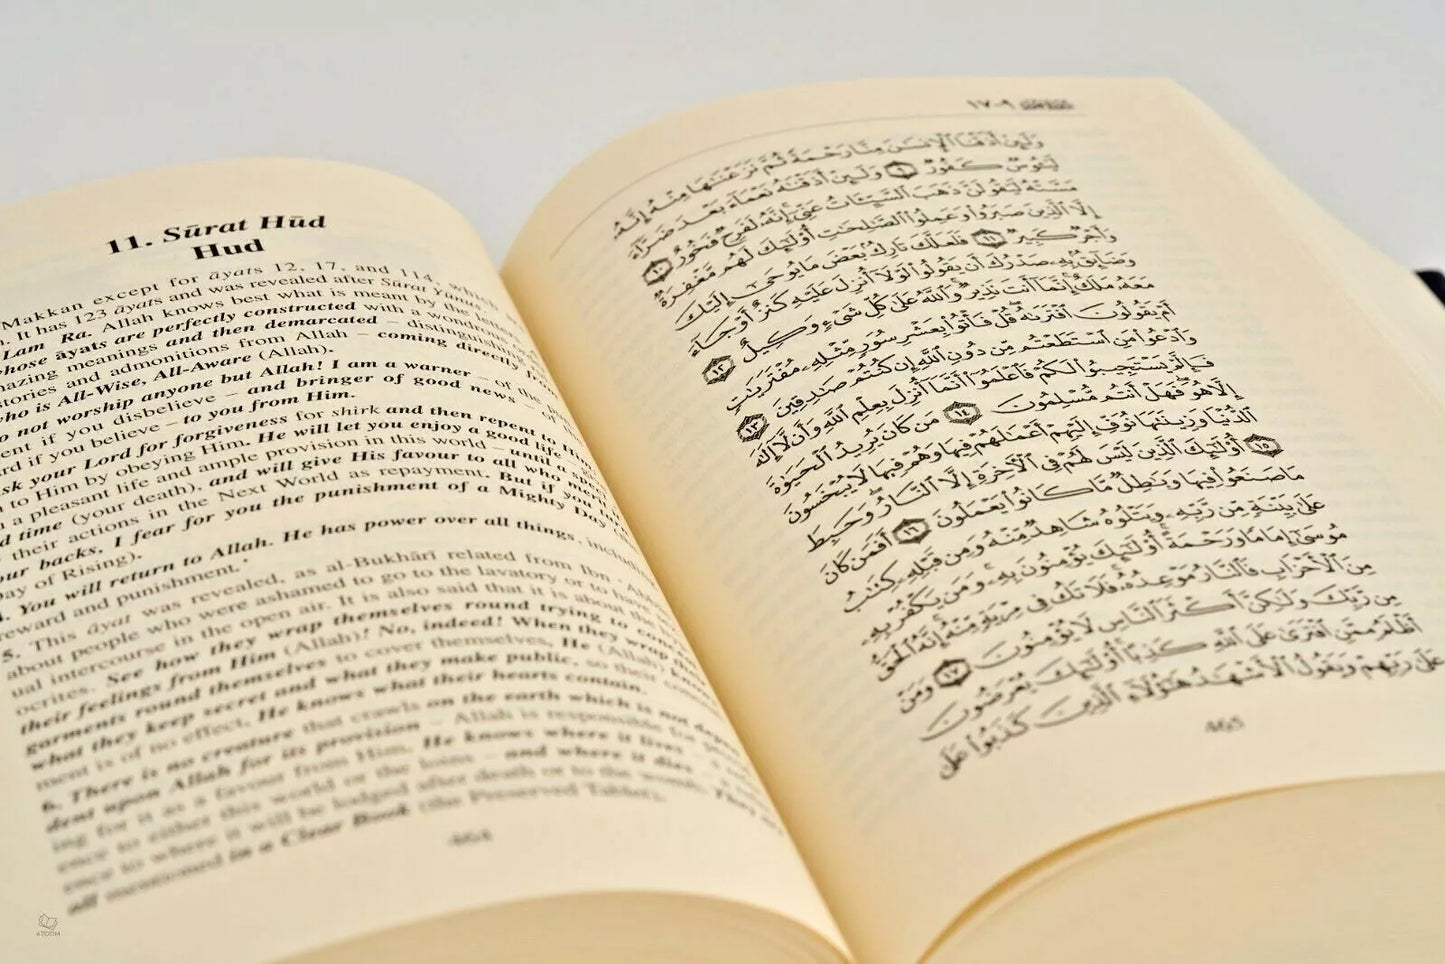 11. Sūrat Hūd
Hud
Makkan except for āyats 12, 17, and 114, which
. It has 123 āyats and was revealed after Sūrat Yūnus.
Lam Ra. Allah knows best what is meant by the letters.
whose āyats are perfectly constructed with a wondrous
meanings and then demarcated – distinguishing
stories and admonitions from Allah – coming directly from
who is All-Wise, All-Aware (Allah).
Do not worship anyone but Allah! I am a warner – of the
if you disbelieve – and bringer of good news – of
if you believe – to you from Him.
ask your Lord for forgiveness for shirk and then repent to Him
to Him by obeying Him. He will let you enjoy a good life
a pleasant life and ample provision in this world – until a
time (your death), and will give His favour to all who merit
their actions in the Next World as repayment. But if you
your backs, I fear for you the punishment of a Mighty Day
Day of Rising).
4. You will return to Allah. He has power over all things, including
reward and punishment.
5. This āyat was revealed, as al-Bukhārī related from Ibn ‘Abbās,
about people who were ashamed to go to the lavatory or to have
ual intercourse in the open air. It is also said that it is about the
ocrites. See how they wrap themselves round trying to conceal
their feelings from Him (Allah)! No, indeed! When they wrap their
garments round themselves to cover themselves, He (Allah) knows
what they keep secret and what they make public, so their
ment is of no effect. He knows what their hearts contain.
6. There is no creature that crawls on the earth which is not depen-
dent upon Allah for its provision – Allah is responsible for
ing for it as a favour from Him. He knows where it lives –
ence to either this world or the loins – and where it dies –
ence to where it will be lodged after death or to the womb. They are
all mentioned in a Clear Book (the Preserved Tablet).
464
١٧-٩
وَلَئِنْ أَذَقْنَا ٱلْإِنسَـٰنَ مِنَّا رَحْمَةً ثُمَّ نَزَعْنَـٰهَا مِنْهُ إِنَّهُۥ
لَيَـُٔوسٌ كَفُورٌ ٩ وَلَئِنْ أَذَقْنَـٰهُ نَعْمَآءَ بَعْدَ ضَرَّآءَ
مَسَّتْهُ لَيَقُولَنَّ ذَهَبَ ٱلسَّيِّـَٔاتُ عَنِّىٓ إِنَّهُۥ لَفَرِحٌ فَخُورٌ ١٠
إِلَّا ٱلَّذِينَ صَبَرُوا۟ وَعَمِلُوا۟ ٱلصَّـٰلِحَـٰتِ أُو۟لَـٰٓئِكَ لَهُم مَّغْفِرَةٌ
وَأَجْرٌ كَبِيرٌ ١١ فَلَعَلَّكَ تَارِكٌۢ بَعْضَ مَا يُوحَىٰٓ إِلَيْكَ
وَضَآئِقٌۢ بِهِۦ صَدْرُكَ أَن يَقُولُوا۟ لَوْلَآ أُنزِلَ عَلَيْهِ كَنزٌ أَوْ جَآءَ
مَعَهُۥ مَلَكٌ إِنَّمَآ أَنتَ نَذِيرٌ وَٱللَّهُ عَلَىٰ كُلِّ شَىْءٍ وَكِيلٌ ١٢
أَمْ يَقُولُونَ ٱفْتَرَىٰهُ قُلْ فَأْتُوا۟ بِعَشْرِ سُوَرٍ مِّثْلِهِۦ مُفْتَرَيَـٰتٍ
وَٱدْعُوا۟ مَنِ ٱسْتَطَعْتُم مِّن دُونِ ٱللَّهِ إِن كُنتُمْ صَـٰدِقِينَ ١٣
فَإِلَّمْ يَسْتَجِيبُوا۟ لَكُمْ فَٱعْلَمُوٓا۟ أَنَّمَآ أُنزِلَ بِعِلْمِ ٱللَّهِ وَأَن لَّآ إِلَـٰهَ
إِلَّا هُوَ فَهَلْ أَنتُم مُّسْلِمُونَ ١٤ مَن كَانَ يُرِيدُ ٱلْحَيَوٰةَ
ٱلدُّنْيَا وَزِينَتَهَا نُوَفِّ إِلَيْهِمْ أَعْمَـٰلَهُمْ فِيهَا وَهُمْ فِيهَا لَا يُبْخَسُونَ
١٥ أُو۟لَـٰٓئِكَ ٱلَّذِينَ لَيْسَ لَهُمْ فِى ٱلْـَٔاخِرَةِ إِلَّا ٱلنَّارُ وَحَبِطَ
مَا صَنَعُوا۟ فِيهَا وَبَـٰطِلٌ مَّا كَانُوا۟ يَعْمَلُونَ ١٦ أَفَمَن كَانَ
عَلَىٰ بَيِّنَةٍ مِّن رَّبِّهِۦ وَيَتْلُوهُ شَاهِدٌ مِّنْهُ وَمِن قَبْلِهِۦ كِتَـٰبُ
مُوسَىٰٓ إِمَامًا وَرَحْمَةً أُو۟لَـٰٓئِكَ يُؤْمِنُونَ بِهِۦ وَمَن يَكْفُرْ بِهِۦ
مِنَ ٱلْأَحْزَابِ فَٱلنَّارُ مَوْعِدُهُۥ فَلَا تَكُ فِى مِرْيَةٍ مِّنْهُ إِنَّهُ ٱلْحَقُّ
مِن رَّبِّكَ وَلَـٰكِنَّ أَكْثَرَ ٱلنَّاسِ لَا يُؤْمِنُونَ ١٧ وَمَنْ
أَظْلَمُ مِمَّنِ ٱفْتَرَىٰ عَلَى ٱللَّهِ كَذِبًا أُو۟لَـٰٓئِكَ يُعْرَضُونَ
عَلَىٰ رَبِّهِمْ وَيَقُولُ ٱلْأَشْهَـٰدُ هَـٰٓؤُلَآءِ ٱلَّذِينَ كَذَبُوا۟ عَلَىٰ
465